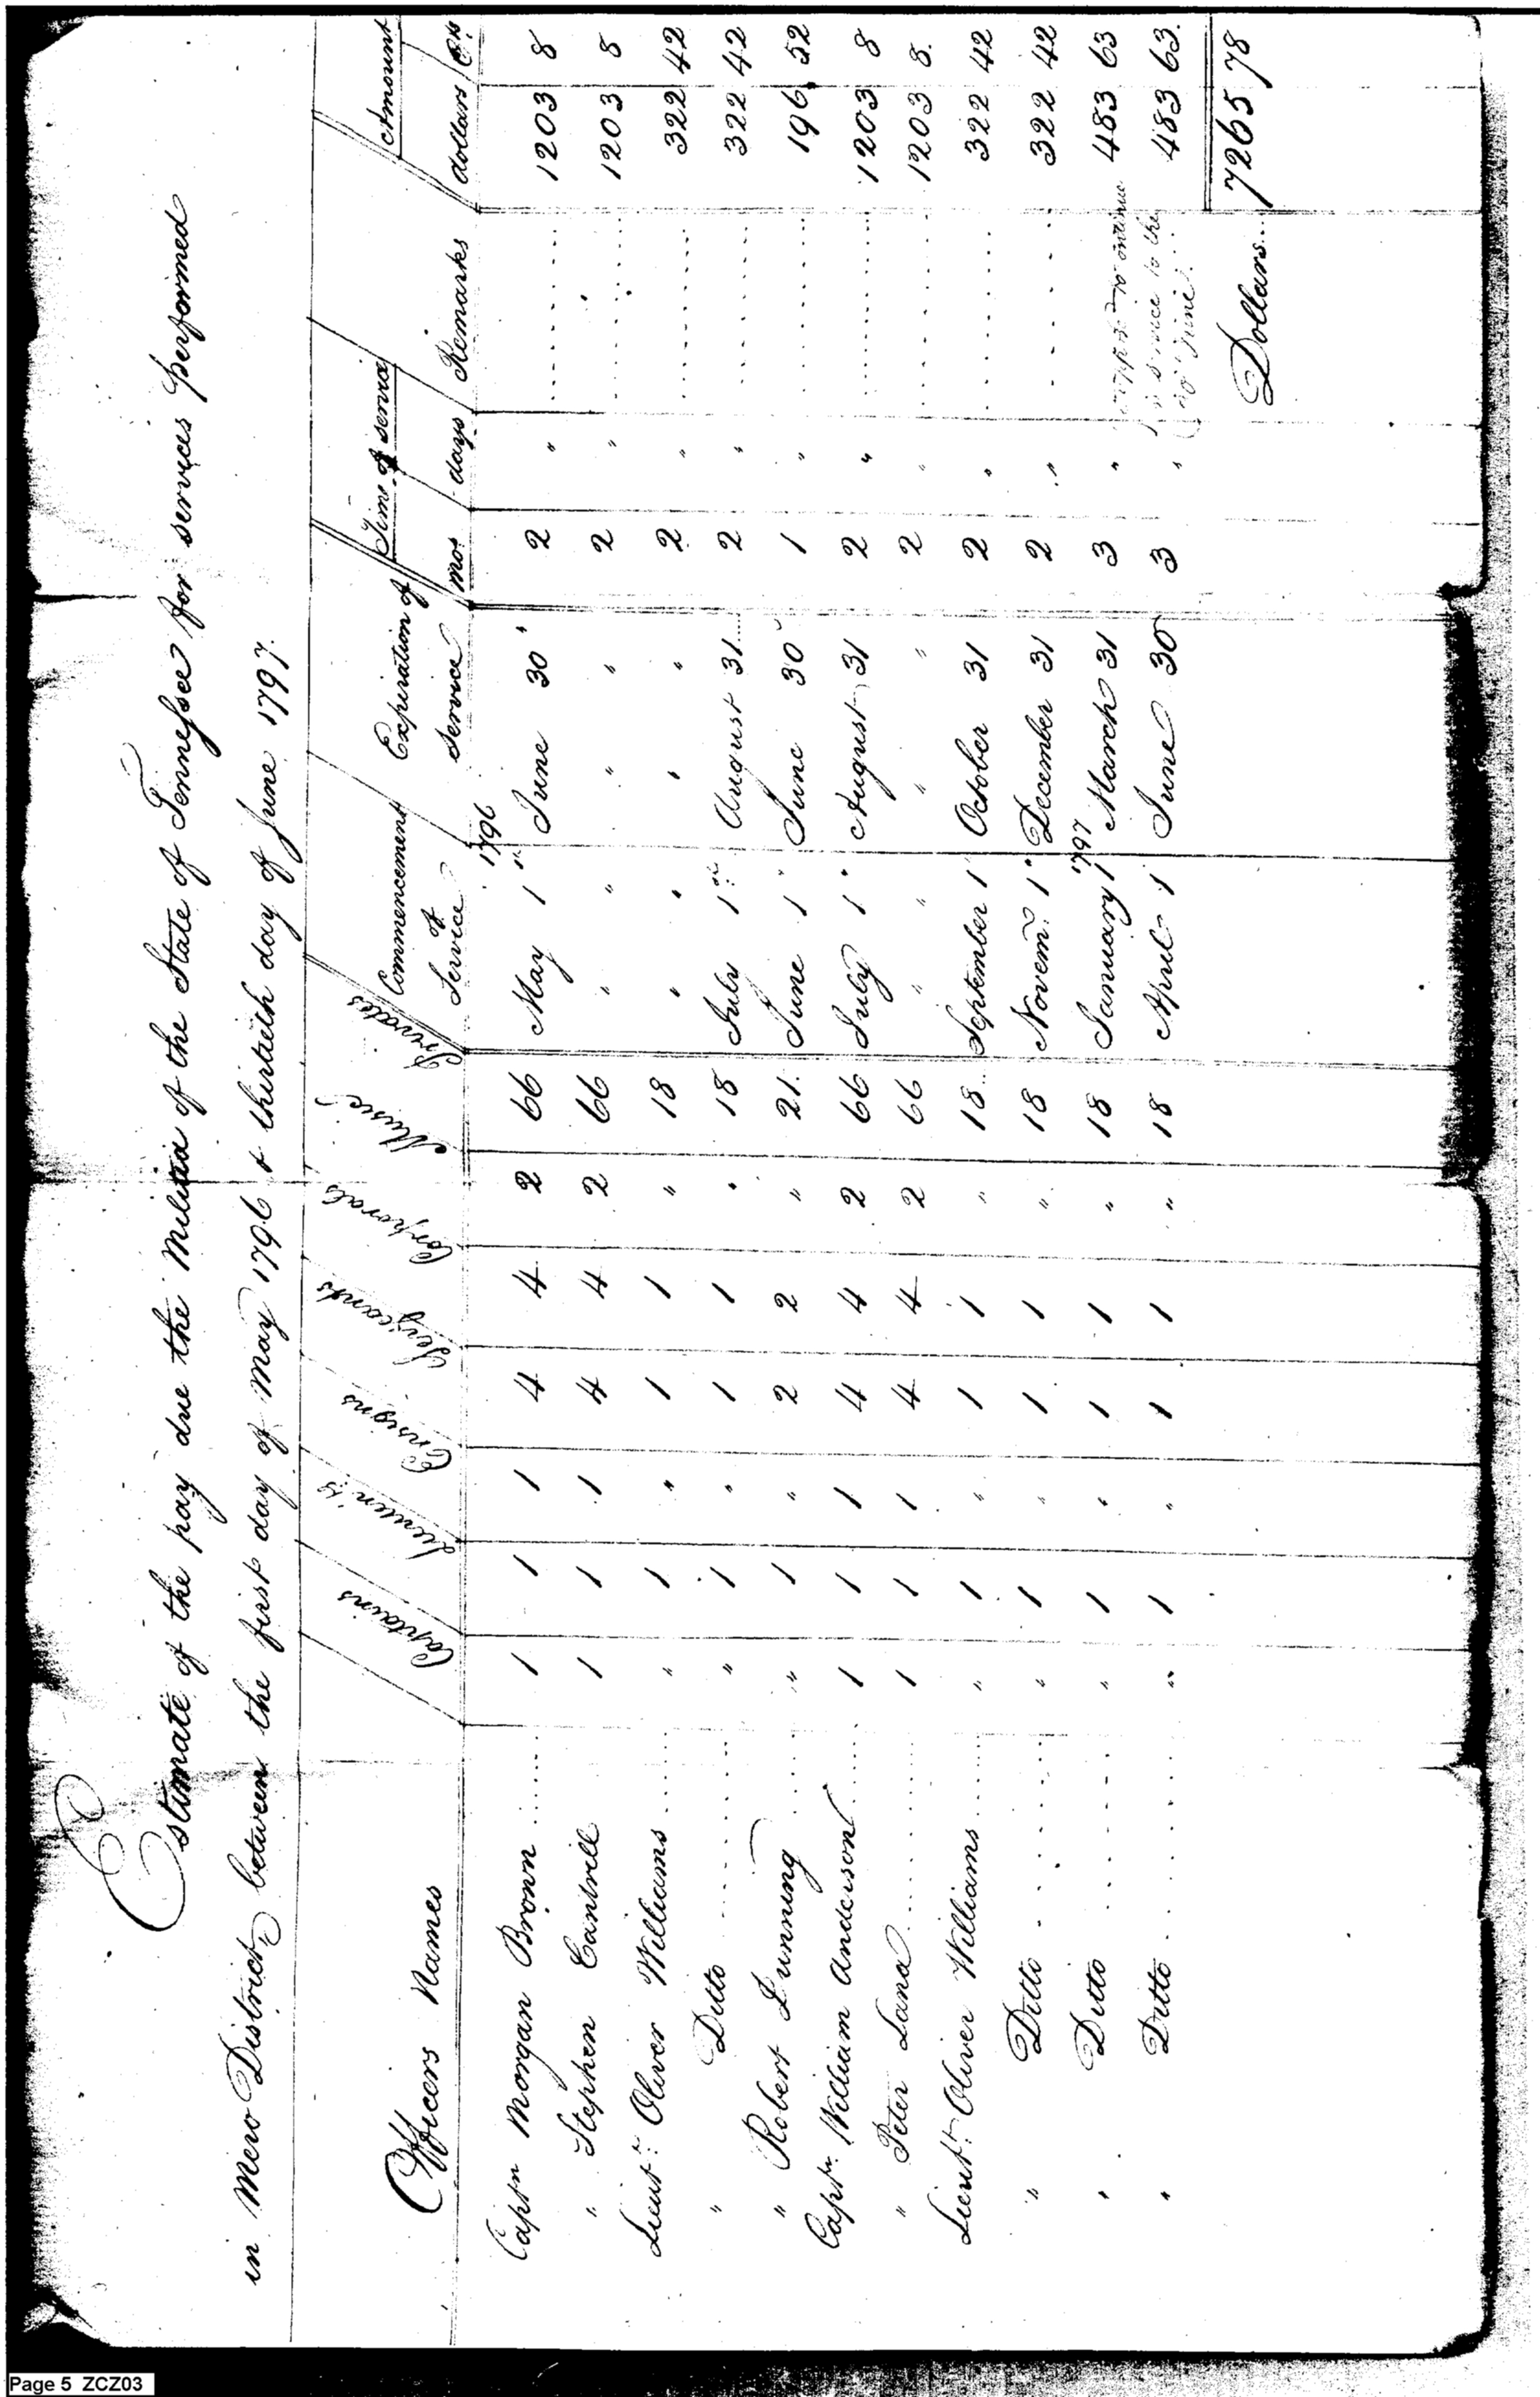 Estimate of the pay due the Militia of the State of Tennessee for services performed
in Mero District between the first day of May 1796 & thirtieth day of June 1797.
Officers Names Captains Lieuten.ts Ensigns Serjeants Corporals Music Privates Commencement of Service Expiration of Service Time of service mos. days Remarks Amount dollars Cts.
1796
Captn Morgan Brown 1 1 1 4 4 2 66 May 1st June 30 2 " 1203 8
" Stephen Cantrell 1 1 1 4 4 2 66 " " " " 2 " 1203 8
Lieut: Oliver Williams " 1 " 1 1 " 18 " " " " 2 " 322 42
" Ditto " 1 " 1 1 " 18 July 1st August 31 2 " 322 42
" Robert Dunning " 1 " 2 2 " 21 June 1 June 30 1 " 196 52
Captn. William Anderson 1 1 1 4 4 2 66 July 1 August 31 2 " 1203 8
" Peter Land 1 1 1 4 4 2 66 " " " " 2 " 1203 8
Lieut: Oliver Williams " 1 " 1 1 " 18 September 1 October 31 2 " 322 42
" Ditto " 1 " 1 1 " 18 Novem: 1 December 31 2 " 322 42
1797
" Ditto " 1 " 1 1 " 18 January 1 March 31 3 " 483 63
" Ditto " 1 " 1 1 " 18 April 1 June 30 3 " service to the June 483 63
Dollars 7265 78
Page 5 ZCZ03